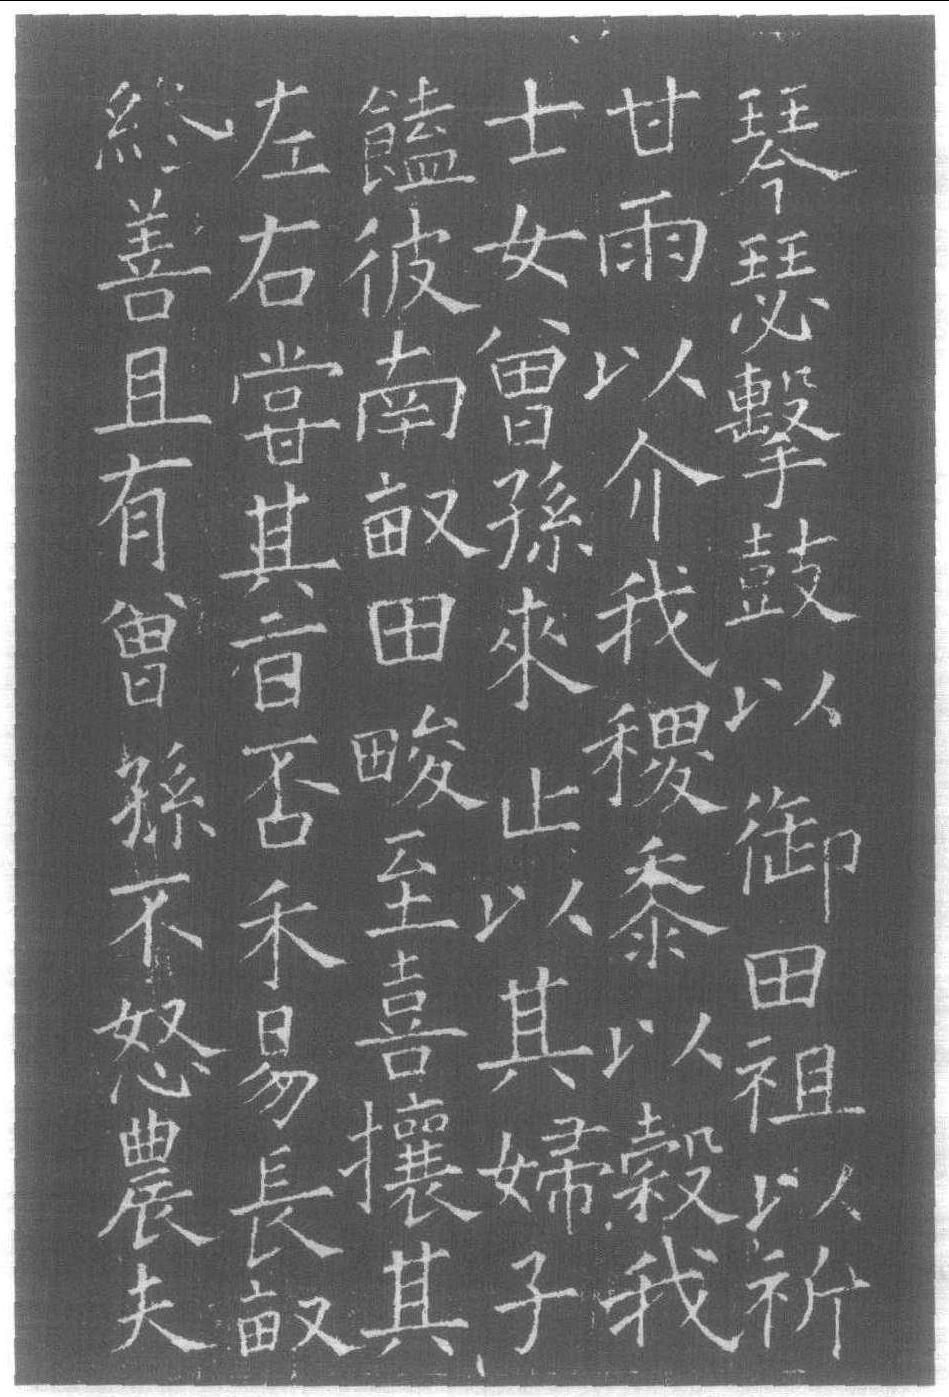 琴瑟擊鼓以御田祖以祈
甘雨以介我稷黍以穀我
士女曾孫來止以其婦子
饁彼南畝田畯至喜攘其
左右嘗其旨否禾易長畝
終善且有曾孫不怒農夫